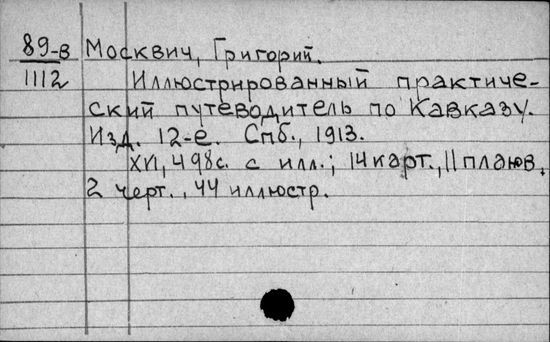 89-в Москвич, Григорий.
1112 Иллюстрированный практиче-
ский путеводитель по Кавказу.
Изд. 12-е. Спб., 1913.
XVI, 498с. с илл.; 14 карт., 11 планов,
2 черт., 44 иллюстр.